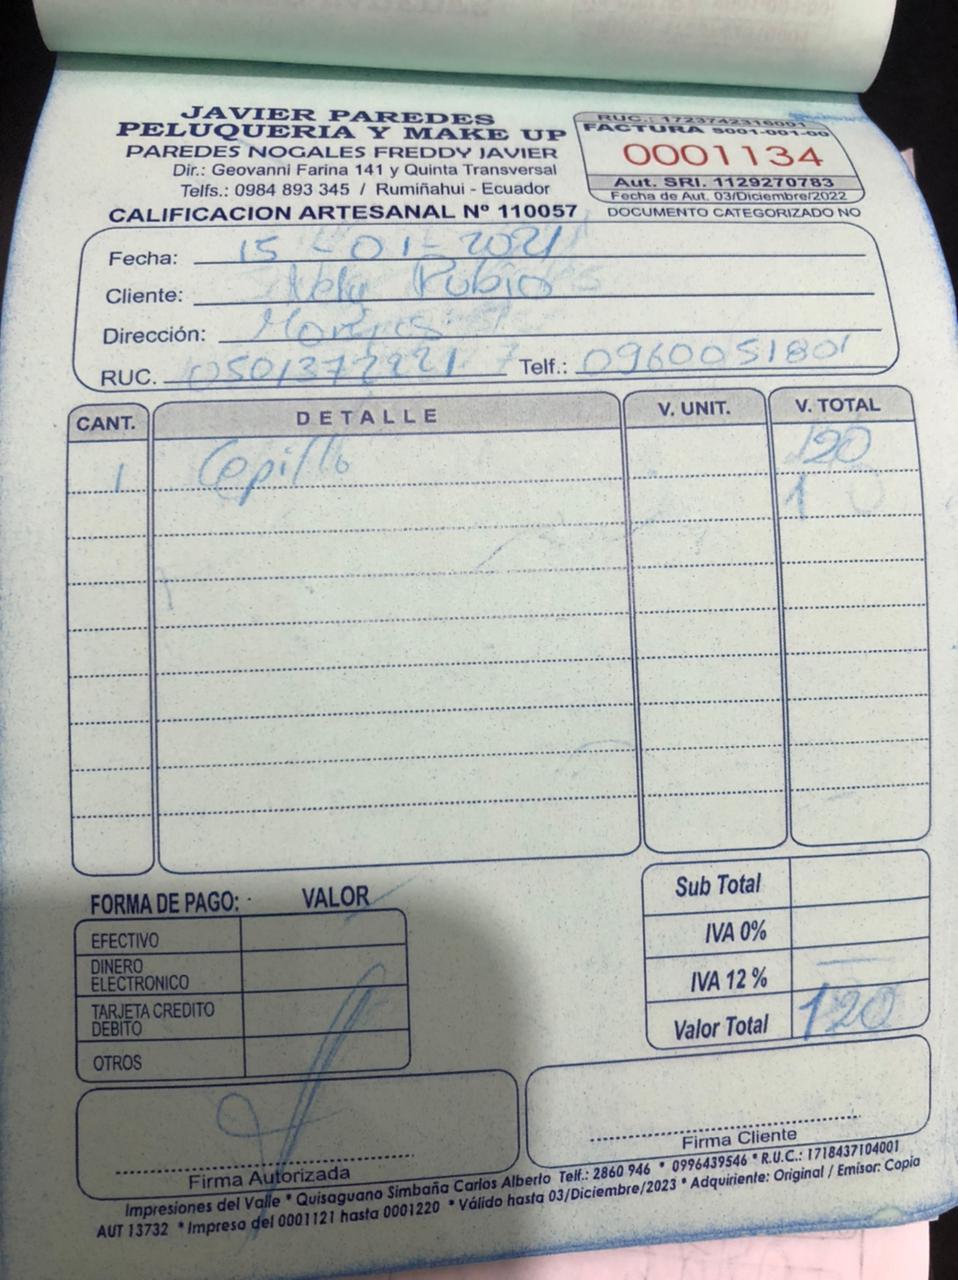 JAVIER PAREDES
PELUQUERIA Y MAKE UP
PAREDES NOGALES FREDDY JAVIER
Dir.: Geovanni Farina 141 y Quinta Transversal
Telfs.: 0984 893 345 / Rumiñahui - Ecuador
CALIFICACION ARTESANAL Nº 110057
RUC.: 1723742316001
FACTURA S001-001-00
0001134
Aut. SRI. 1129270783
Fecha de Aut. 03/Diciembre/2022
DOCUMENTO CATEGORIZADO NO
Fecha: 15 - 01 - 2021
Cliente: Nely Rubio
Dirección:
RUC. Telf.: 0960051801
CANT. DETALLE V. UNIT. V. TOTAL
1 Cepillo 120
FORMA DE PAGO: VALOR
EFECTIVO
DINERO
ELECTRONICO
TARJETA CREDITO
DEBITO
OTROS
Sub Total
IVA 0%
IVA 12 %
Valor Total 120
Firma Autorizada
Firma Cliente
Impresiones del Valle * Quisaguano Simbaña Carlos Alberto Telf.: 2860 946 * 0996439546 * R.U.C.: 1718437104001
AUT 13732 * Impreso del 0001121 hasta 0001220 * Válido hasta 03/Diciembre/2023 * Adquiriente: Original / Emisor: Copia